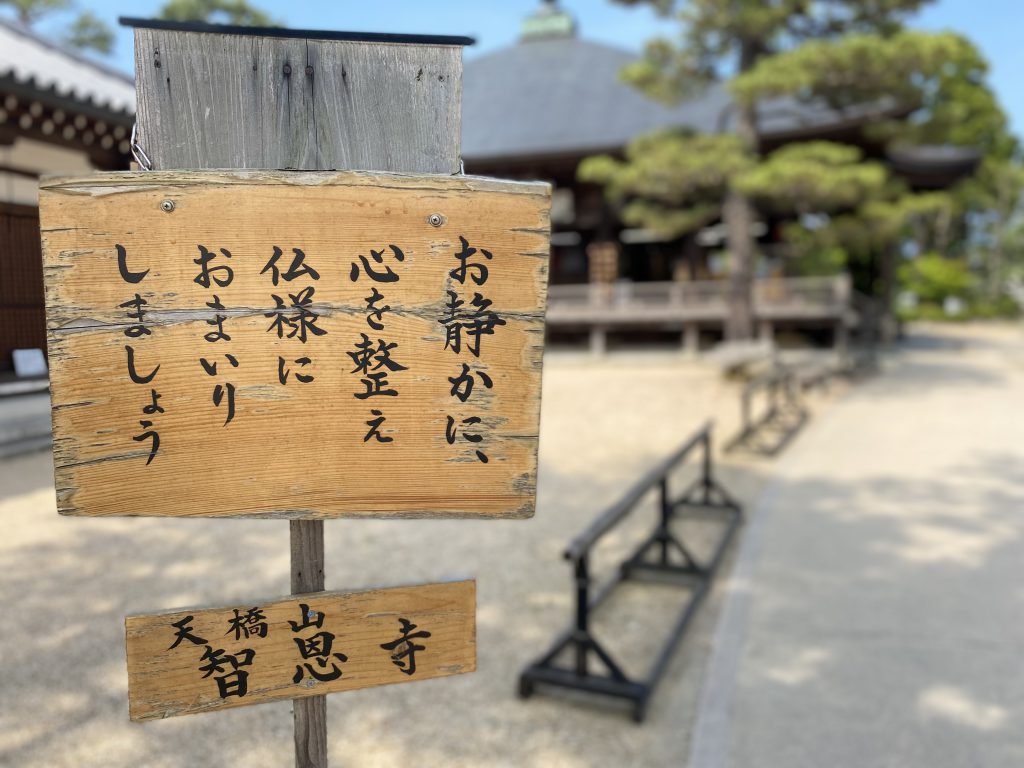 お静かに、
心を整え
仏様に
おまいり
しましょう
天橋山
智恩寺